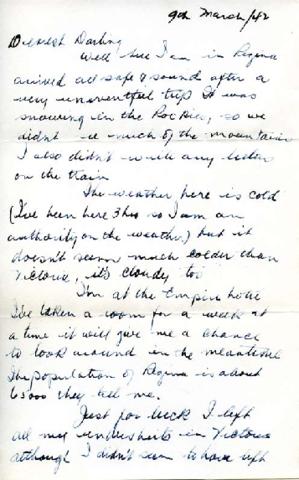 9th March/42
Dearest Darling
Well here I am in Regina
arrived all safe & sound after a
very uneventful trip It was
snowing in the Rockies, so we
didn't see much of the mountains
I also didn't write any letters
on the train
The weather here is cold
(I've been here 3 hrs so I am an
authority on the weather) but it
doesn't seem much colder than
Victoria, it's cloudy too
I'm at the Empire hotel
I've taken a room for a week at
a time it will give me a chance
to look around in the meantime
The population of Regina is about
65000 they tell me.
Just for luck I left
all my undershirts in Victoria
although I didn't seem to have left